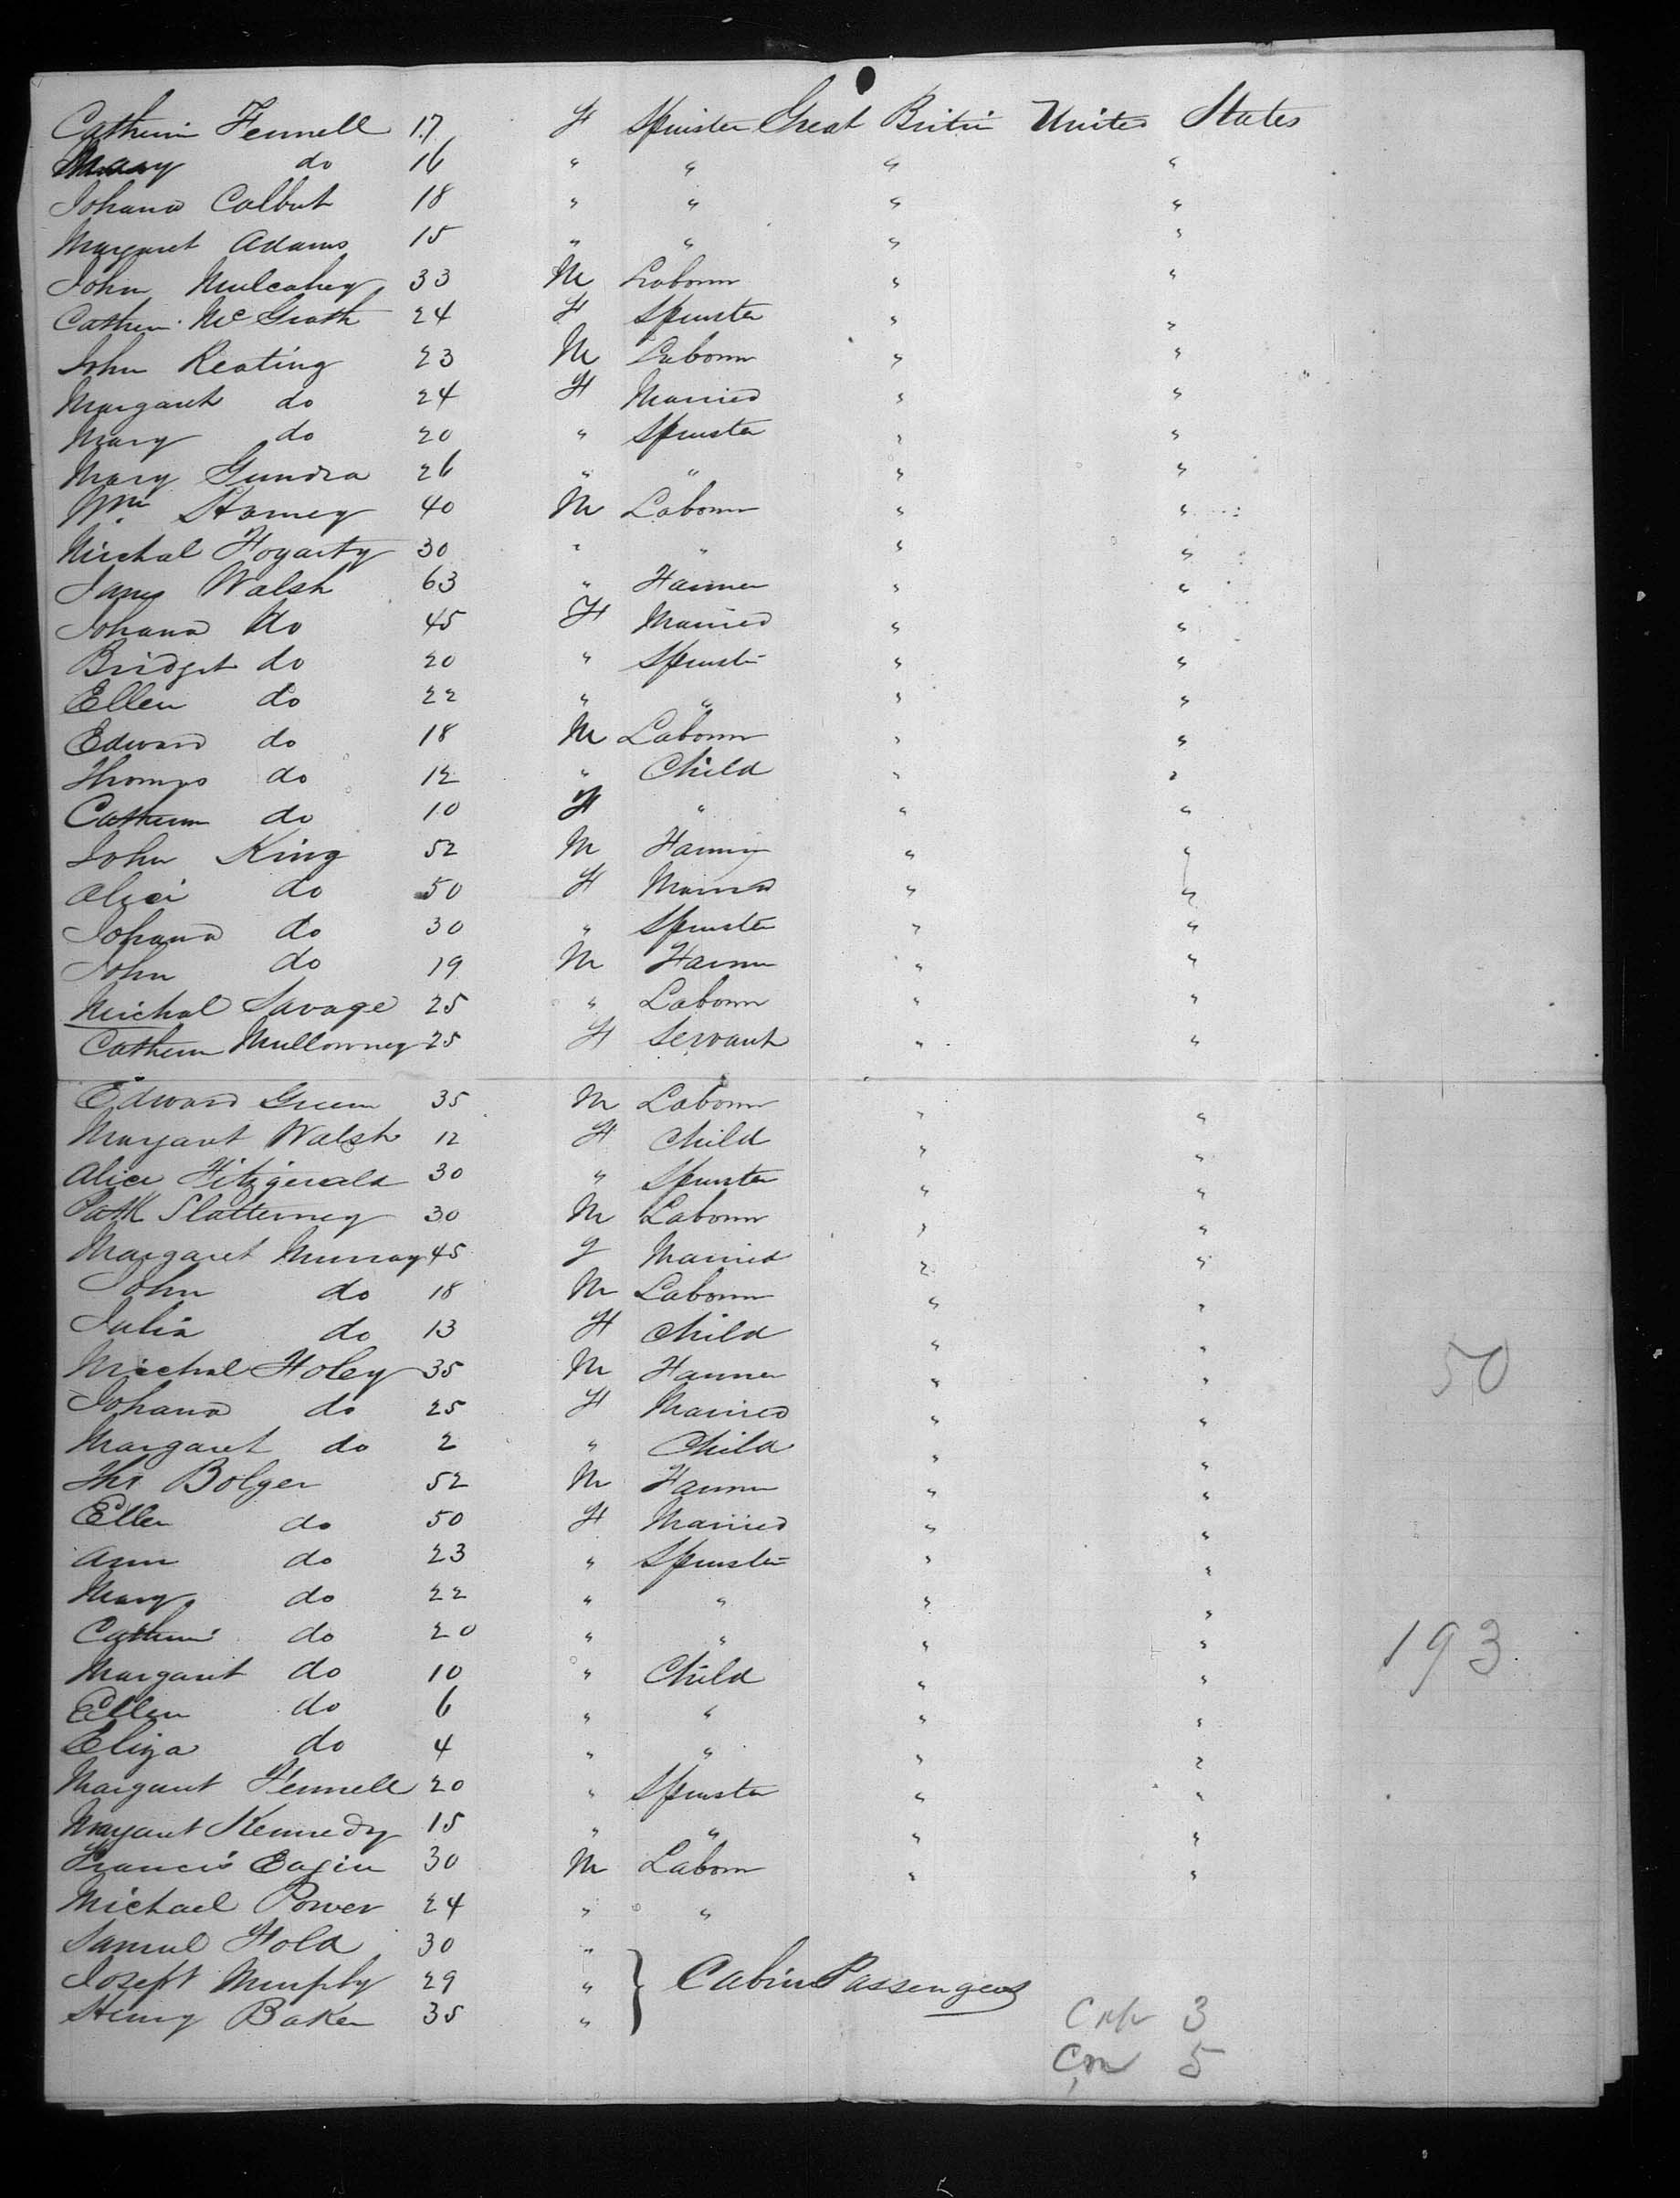 Catherin Fennell 17 F Spinster Great Britin United States
Mary do 16 " " " "
Johana Calbut 18 " " " "
Margaret Adams 15 " " " "
John Mulcahey 33 M Laborer " "
Catherin McGrath 24 F Spinster " "
John Keating 23 M Laborer " "
Margaret do 24 F Married " "
Mary do 20 " Spinster " "
Mary Gundra 26 " " " "
Wm 40 M Laborer " "
Michal Fogarty 30 " " " "
James Walsh 63 " Farmer " "
Johana do 45 F Married " "
Bridget do 20 " Spinster " "
Ellen do 22 " " " "
Edward do 18 M Laborer " "
Thomas do 12 " Child " "
Catherin do 10 F " " "
John King 52 M Farmer " "
Alice do 50 F Married " "
Johana do 30 " Spinster " "
John do 19 M Farmer " "
Michal Savage 25 " Laborer " "
Catherin Mullowney 25 F Servant " "
Edward Green 35 M Laborer " "
Margaret Walsh 12 F Child " "
Alice Fitzgerald 30 " Spinster " "
Patk Slatterney 30 M Laborer " "
Margaret Murray 45 F Married " "
John do 18 M Laborer " "
Julia do 13 F Child " "
Michal Foley 35 M Farmer " "
50
Johana do 25 F Married " "
Margaret do 2 " Child " "
Ths Bolger 52 M Farmer " "
Ellen do 50 F Married " "
Ann do 23 " Spinster " "
Mary do 22 " " " "
Catherin do 20 " " " "
193
Margaret do 10 " Child " "
Ellen do 6 " " " "
Eliza do 4 " " " "
Margaret Fennell 20 " Spinster " "
Margaret Kennedy 15 " " " "
Francis Eagin 30 M Laborer " "
Michael Power 24 " "
Samuel Fold 30 "
Joseph Murphy 29 " } Cabin Passengers
Henry Baker 35 "
3
5